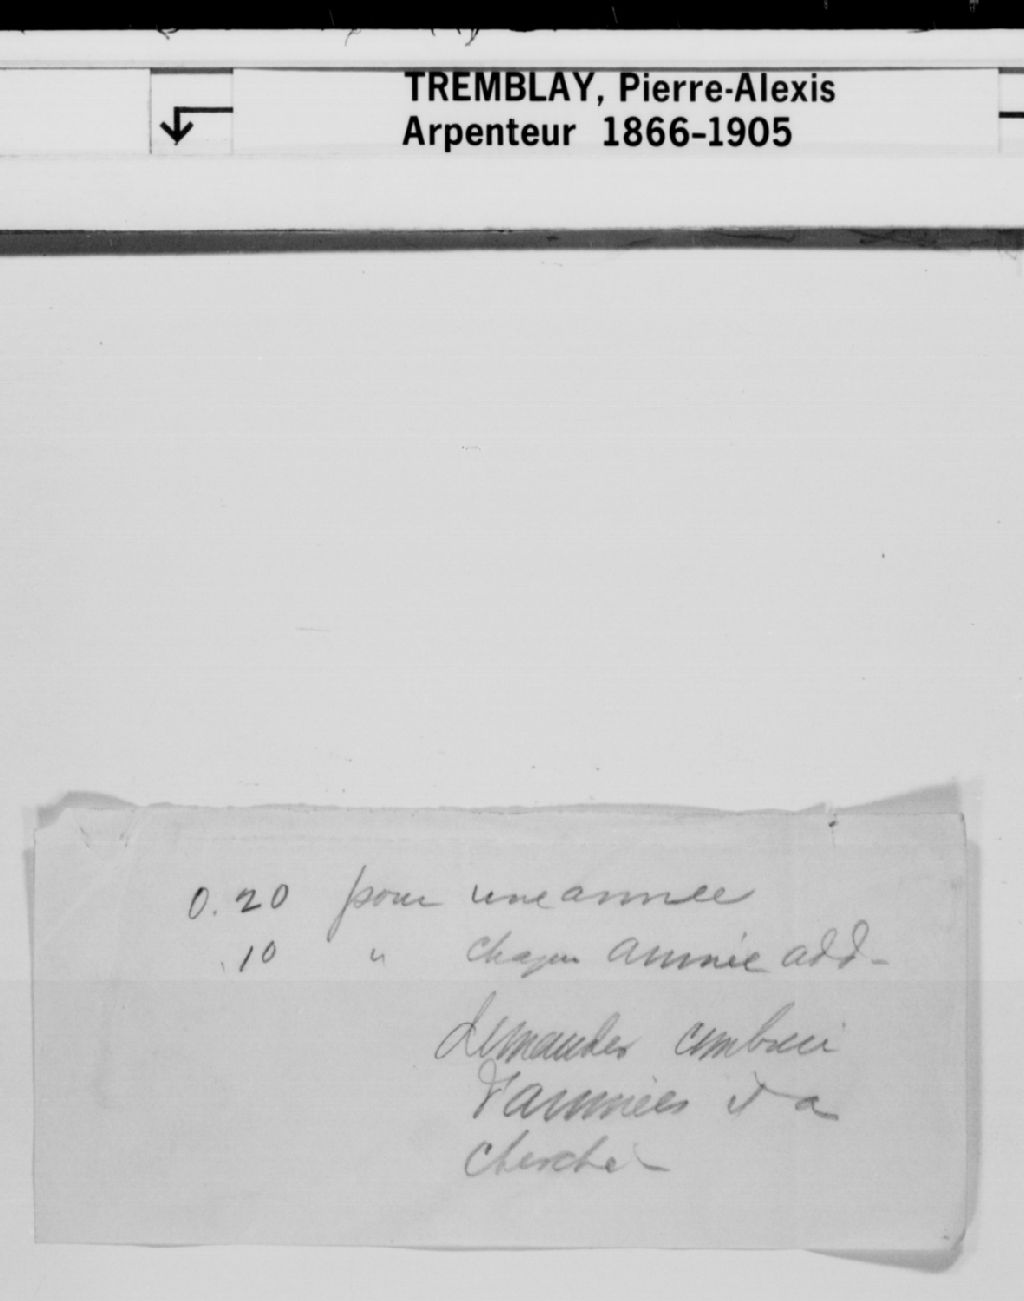 TREMBLAY, Pierre-Alexis
Arpenteur 1866-1905
0.20 pour une annee
.10 " chaque année add-
Demander combien
d'années il a
cherché-